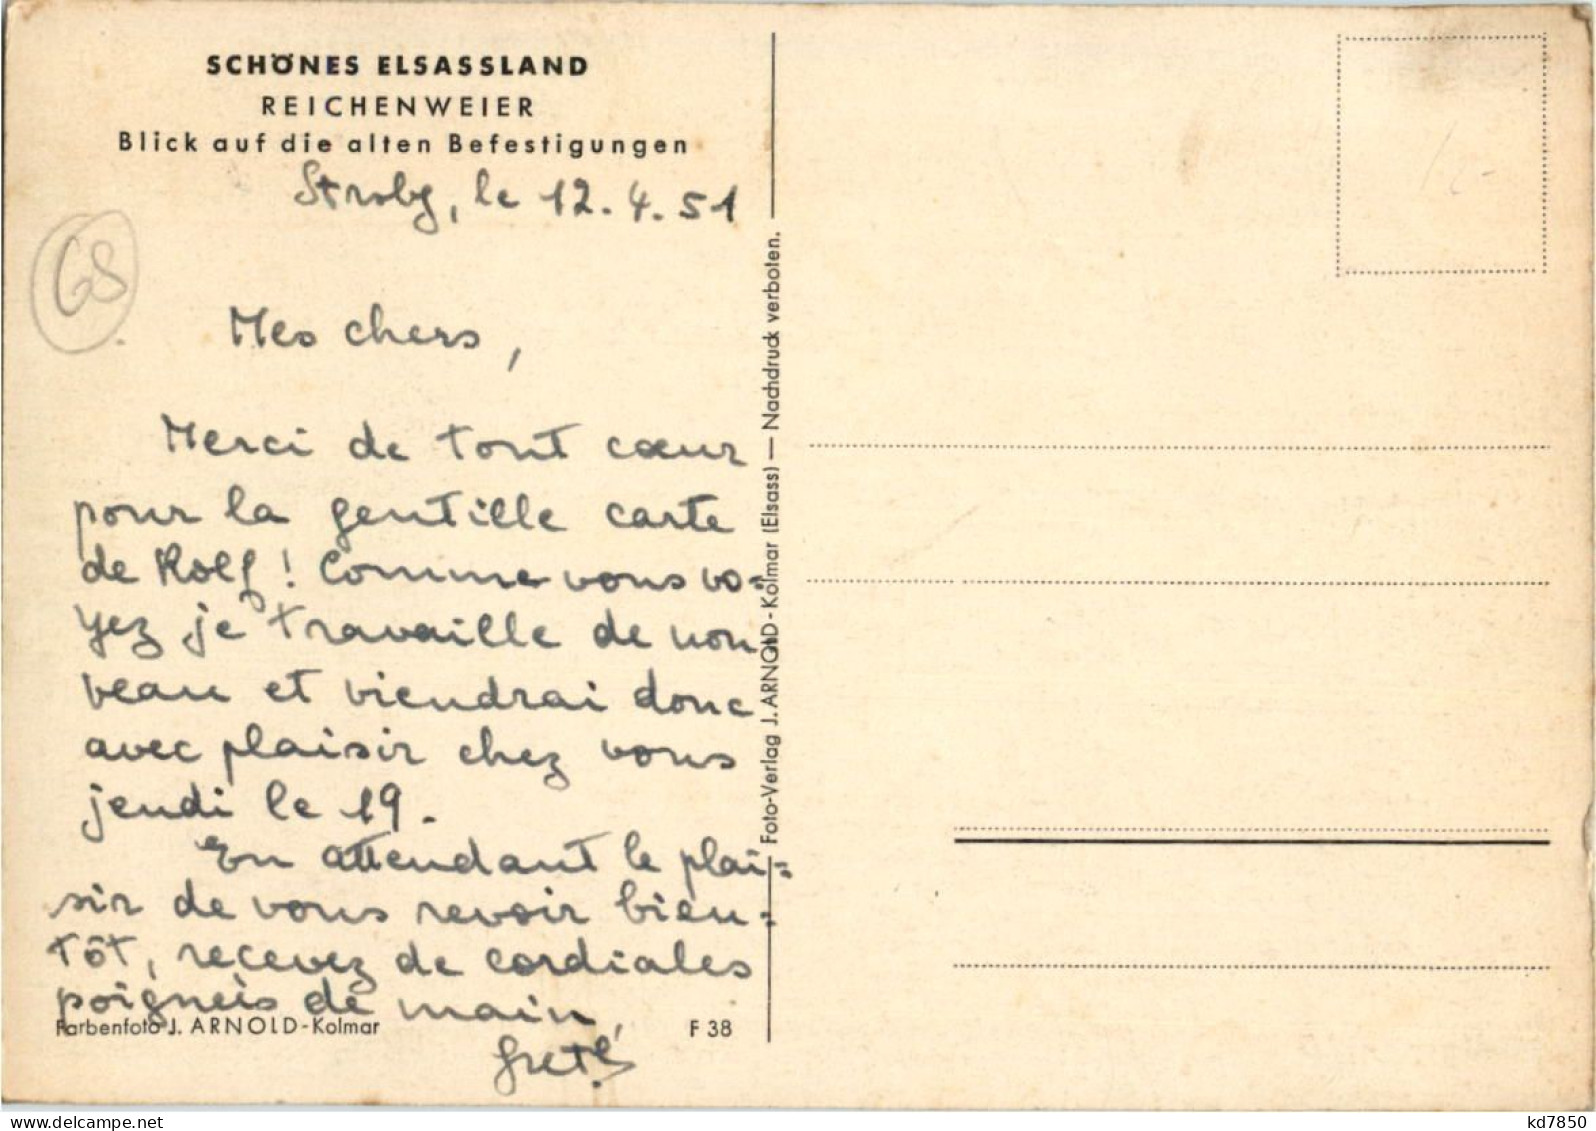 SCHÖNES ELSASSLAND
REICHENWEIER
Blick auf die alten Befestigungen
Strsbg, le 12.4.51
68
Mes chers,
Merci de tout cœur
pour la gentille carte
de Rolf! Comme vous vo=
yez je travaille de nou
veau et viendrai donc
avec plaisir chez vous
jeudi le 19.
En attendant le plai=
sir de vous revoir bien=
tôt, recevez de cordiales
poignées de main,
Farbenfoto J. ARNOLD-Kolmar
F 38
Foto-Verlag J. ARNOLD-Kolmar (Elsass) — Nachdruck verboten.
delcampe.net
kd7850